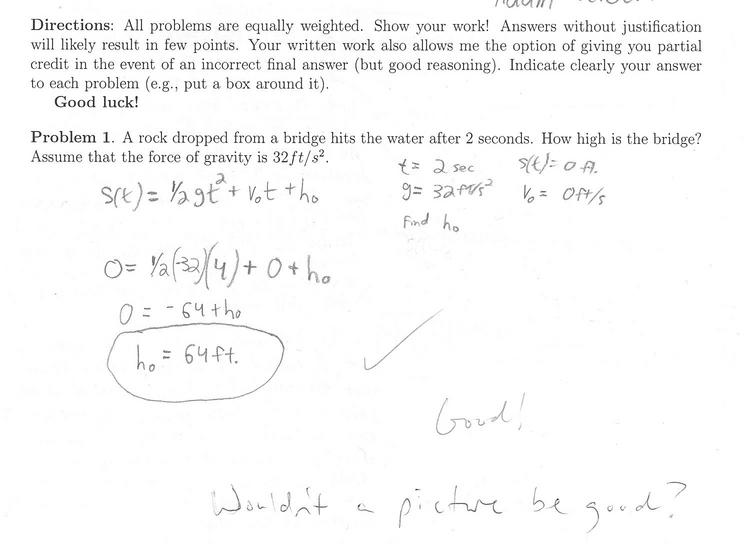 Directions: All problems are equally weighted. Show your work! Answers without justification
will likely result in few points. Your written work also allows me the option of giving you partial
credit in the event of an incorrect final answer (but good reasoning). Indicate clearly your answer
to each problem (e.g., put a box around it).
Good luck!
Problem 1. A rock dropped from a bridge hits the water after 2 seconds. How high is the bridge?
Assume that the force of gravity is 32ft/s².
t = 2 sec s(t) = 0 ft.
g = 32 ft/s² V₀ = 0 ft/s
Find h₀
S(t) = ½gt² + V₀t + h₀
0 = ½(-32)(4) + 0 + h₀
0 = -64 + h₀
h₀ = 64 ft.
✓
Good!
Wouldn't a picture be good?